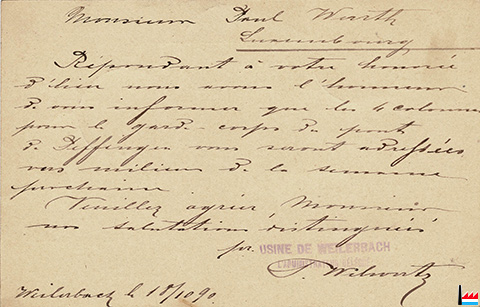 Monsieur Paul Wurth
Luxembourg
Répondant à votre honorée
d'hier nous avons l'honneur
de vous informer que les 4 colonnes
pour le garde-corps du pont
de Deffingen vous seront adressées
vers milieu de la semaine
prochaine
Veuillez agréer, Monsieur
nos salutations distinguées
USINE DE WEILERBACH
L'ADMINISTRATEUR DÉLÉGUÉ
Weilerbach le 18/10 90.